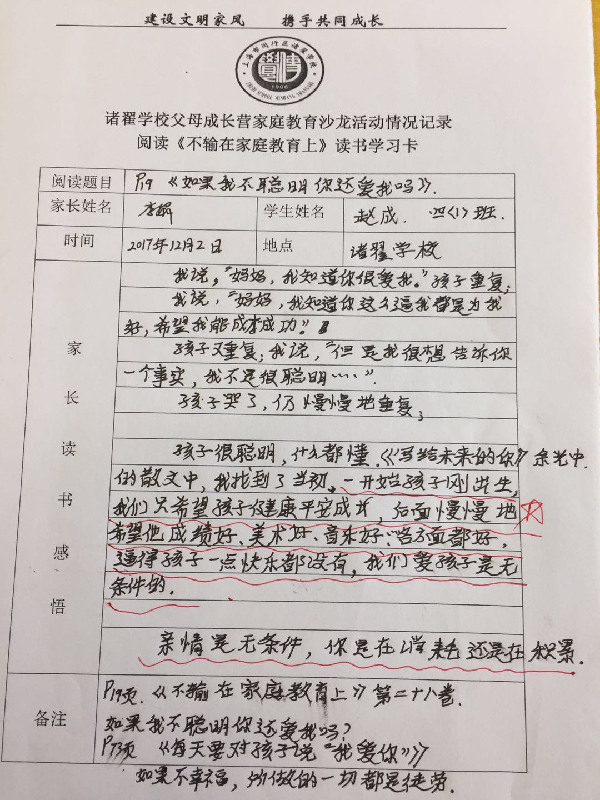 建设文明家风 携手共同成长
上海市闵行区诸翟学校
1906
诸翟学校父母成长营家庭教育沙龙活动情况记录
阅读《不输在家庭教育上》读书学习卡
阅读题目 P19 《如果我不聪明你还爱我吗》.
家长姓名 李 学生姓名 赵成. 四(1)班.
时间 2017年12月2日 地点 诸翟学校
我说,“妈妈,我知道你很爱我。”孩子重复;
我说,“妈妈,我知道你这么逼我都是为我
好,希望我能成才成功”。
孩子又重复;我说,“但是我很想告诉你
一个事实,我不是很聪明……”.
孩子哭了,仍慢慢地重复;
孩子很聪明,什么都懂.《写给未来的你》余光中.
的散文中,我找到了当初.一开始孩子刚出生,
我们只希望孩子健康平安成长,后面慢慢地
希望他成绩好、美术好、音乐好;各方面都好,
逼得孩子一点快乐都没有,我们爱孩子是无
条件的.
亲情是无条件,你是在消耗还是在积累.
家长读书感悟
备注
P19页.《不输在家庭教育上》第二十八卷.
如果我不聪明你还爱我吗?
P73页 《每天要对孩子说“我爱你”》
如果不幸福,所做的一切都是徒劳.